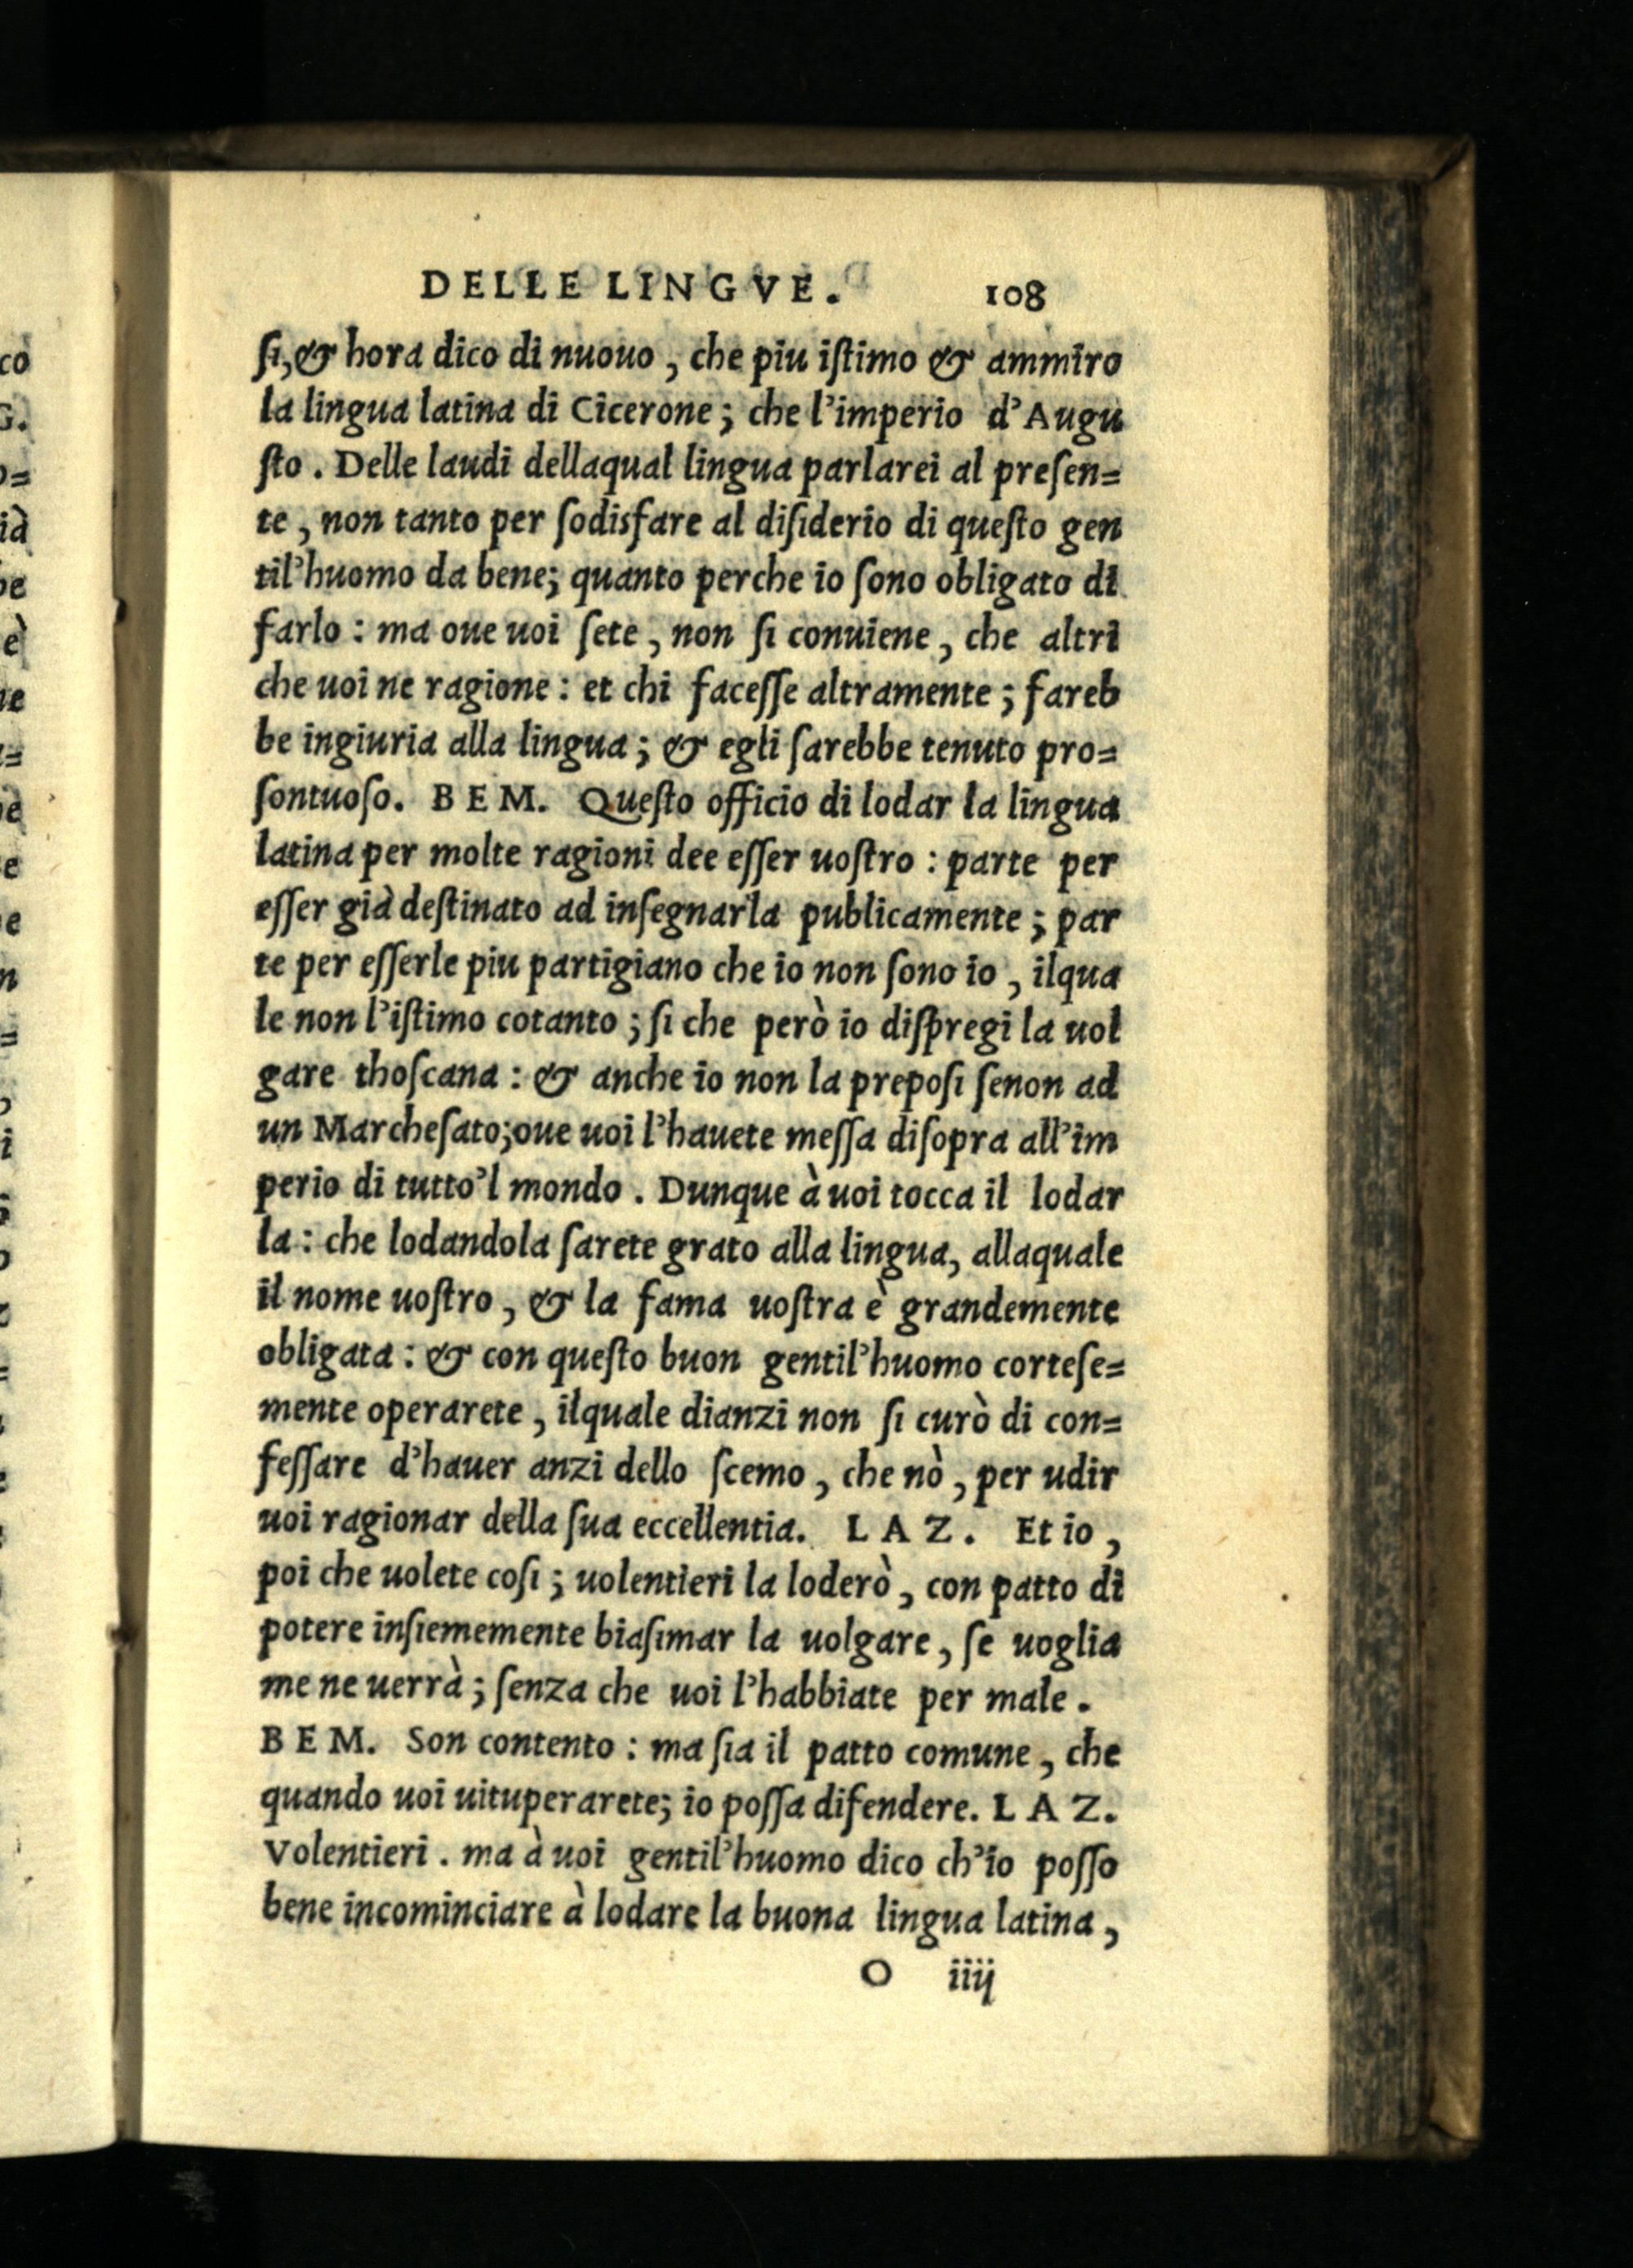 DELLE LINGVE. 108
ſi, & hora dico di nuouo, che piu iſtimo & ammiro
la lingua latina di Cicerone; che l'imperio d'Augu
ſto. Delle laudi dellaqual lingua parlarei al preſen=
te, non tanto per ſodisfare al diſiderio di queſto gen
til'huomo da bene; quanto perche io ſono obligato di
farlo: ma oue uoi ſete, non ſi conuiene, che altri
che uoi ne ragione: et chi faceſſe altramente; fareb
be ingiuria alla lingua; & egli ſarebbe tenuto pro=
ſontuoſo. BEM. Queſto officio di lodar la lingua
latina per molte ragioni dee eſſer uoſtro: parte per
eſſer già deſtinato ad inſegnarla publicamente; par
te per eſſerle piu partigiano che io non ſono io, ilqua
le non l'iſtimo cotanto; ſi che però io diſpregi la uol
gare thoſcana: & anche io non la prepoſi ſenon ad
un Marcheſato; oue uoi l'hauete meſſa diſopra all'im
perio di tutto'l mondo. Dunque à uoi tocca il lodar
la: che lodandola ſarete grato alla lingua, allaquale
il nome uoſtro, & la fama uoſtra è grandemente
obligata: & con queſto buon gentil'huomo corteſe=
mente operarete, ilquale dianzi non ſi curò di con=
feſſare d'hauer anzi dello ſcemo, che nò, per udir
uoi ragionar della ſua eccellentia. LAZ. Et io,
poi che uolete coſi; uolentieri la loderò, con patto di
potere inſiememente biaſimar la uolgare, ſe uoglia
me ne uerrà; ſenza che uoi l'habbiate per male.
BEM. Son contento: ma ſia il patto comune, che
quando uoi uituperarete; io poſſa difendere. LAZ.
Volentieri. ma à uoi gentil'huomo dico ch'io poſſo
bene incominciare à lodare la buona lingua latina,
O iiij